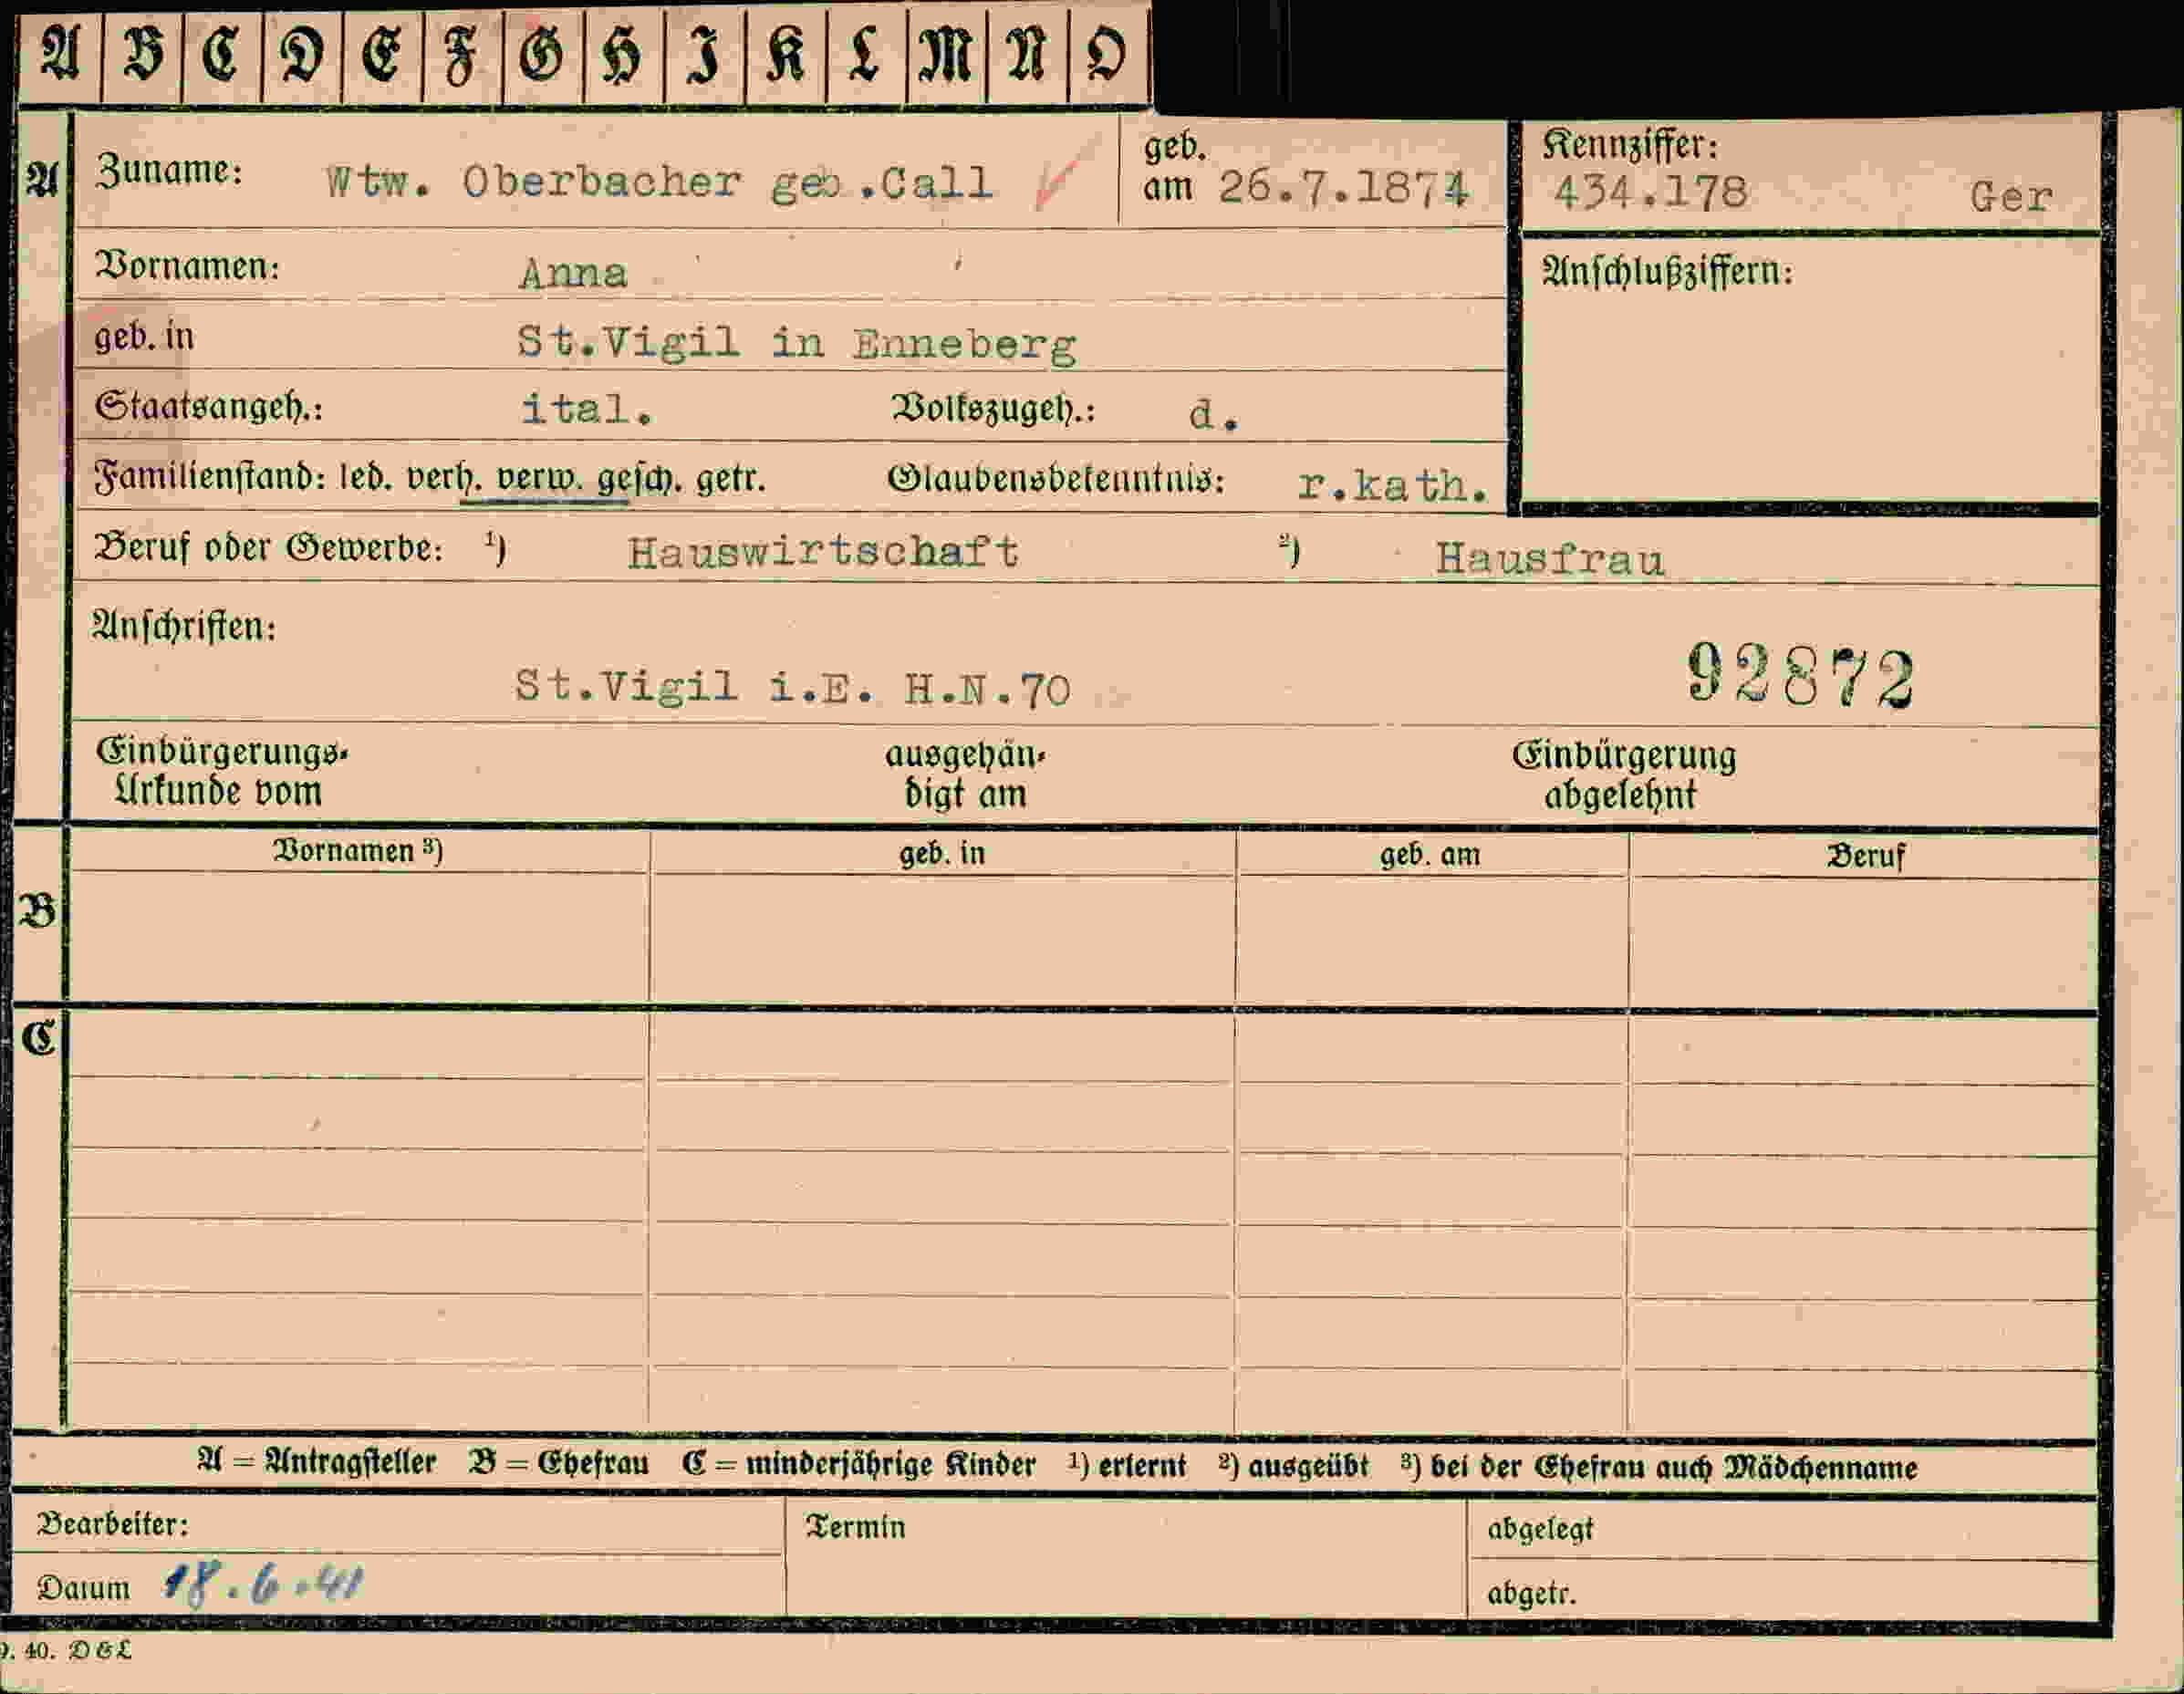 A B C D E F G H I K L M N O
A Zuname: Wtw. Oberbacher geb.Call geb. am 26.7.1874 Kennziffer: 434.178 Ger
Vornamen: Anna Anschlußziffern:
geb. in St.Vigil in Enneberg
Staatsangeh.: ital. Volkszugeh.: d.
Familienstand: led. verh. verw. gesch. getr. Glaubensbekenntnis: r.kath.
Beruf oder Gewerbe: 1) Hauswirtschaft 2) Hausfrau
Anschriften:
St.Vigil i.E. H.N.70 92872
Einbürgerungs- ausgehän- Einbürgerung
Urkunde vom digt am abgelehnt
Vornamen 3) geb. in geb. am Beruf
B
C
A = Antragsteller B = Ehefrau C = minderjährige Kinder 1) erlernt 2) ausgeübt 3) bei der Ehefrau auch Mädchenname
Bearbeiter: Termin abgelegt
Datum 18.6.41 abgetr.
9. 40. D&L